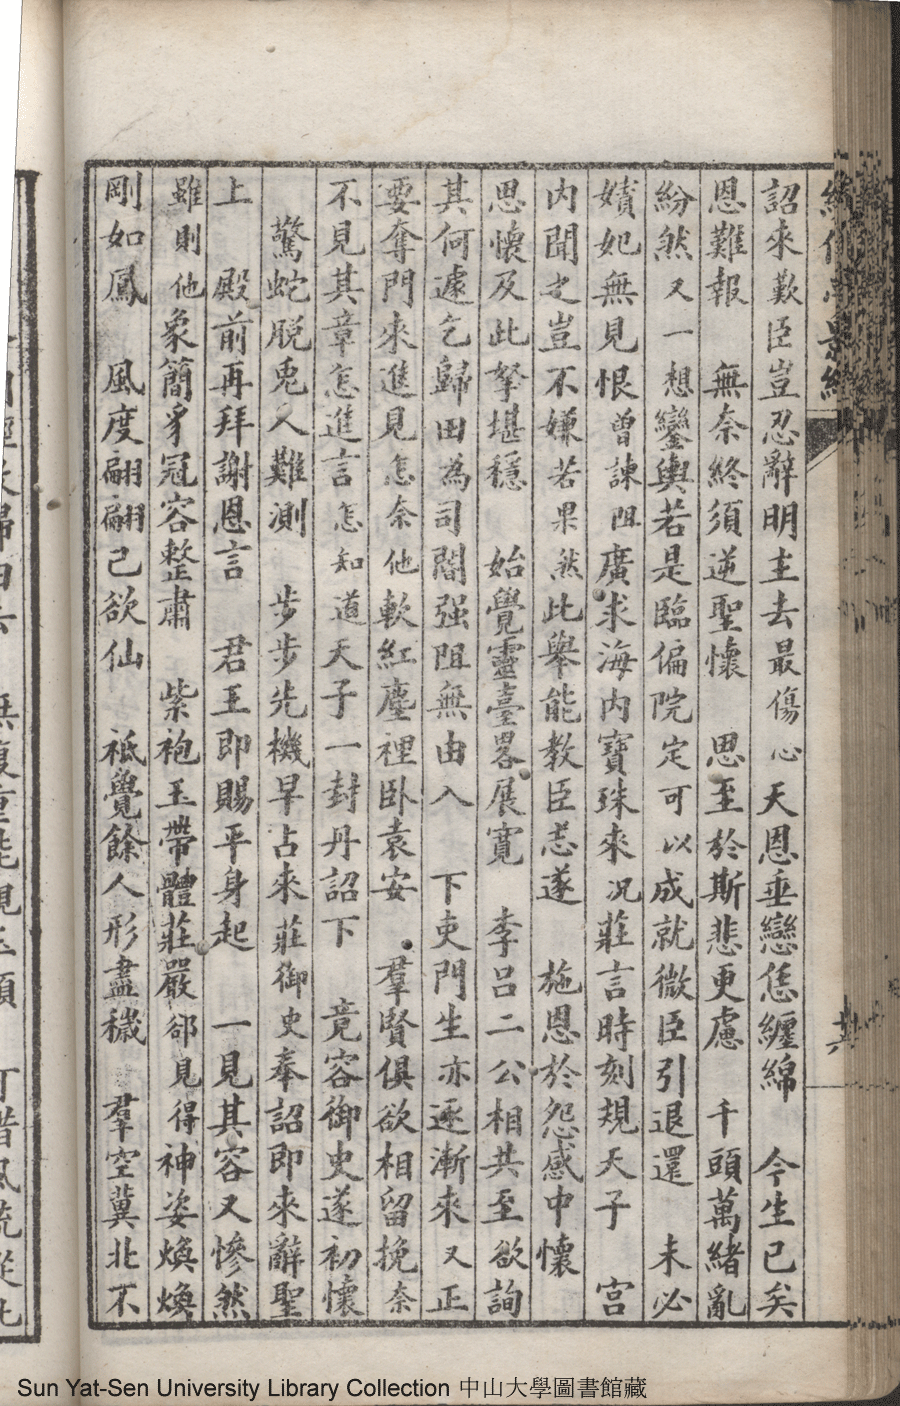 詔來歎臣豈忍辭明主去最傷心天恩垂戀恁纏綿　今生已矣
恩難報　無奈終須逆聖懷　思至於斯悲更慮　千頭萬緒亂
紛然又一想鑾輿若是臨偏院定可以成就微臣引退還　未必
嬪妃無見恨曾諫阻廣求海內寶珠來况莊言時刻規天子　宮
內聞之豈不嫌若果然此舉能教臣志遂　施恩於怨感中懷
思懷及此拏堪穩　始覺靈臺畧展寛　李呂二公相共至欲詢
其何遽乞歸田為司閽强阻無由入　下吏門生亦逐漸來又正
要奪門來進見怎奈他軟紅塵裡卧袁安　羣賢俱欲相留挽奈
不見其章怎進言怎知道天子一封丹詔下　竟容御史遂初懷
驚蛇脱兎人難測　步步先機早占來莊御史奉詔即來辭聖
上　殿前再拜謝恩言　君王即賜平身起　一見其容又慘然
雖則他象簡豸冠容整肅　紫袍玉帶體莊嚴卻見得神姿煥煥
剛如鳳　風度翩翩己欲仙　祇覺餘人形盡穢　羣空冀北不
Sun Yat-Sen University Library Collection 中山大學圖書館藏